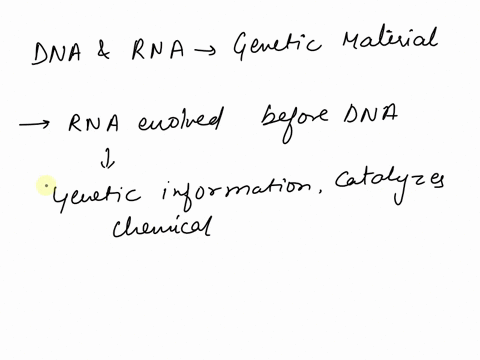 DNA & RNA → Genetic Material
→ RNA evolved before DNA
↓
Genetic information, Catalyzes
chemical